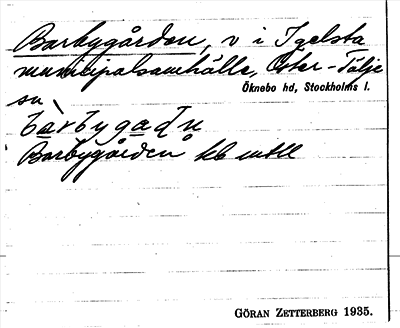 Barbygården, v i Igelsta
municipalsamhälle, Öster-Tälje
sn
Öknebo hd, Stockholms l.
barbygadn
Barbygården kb mtll
GÖRAN ZETTERBERG 1935.